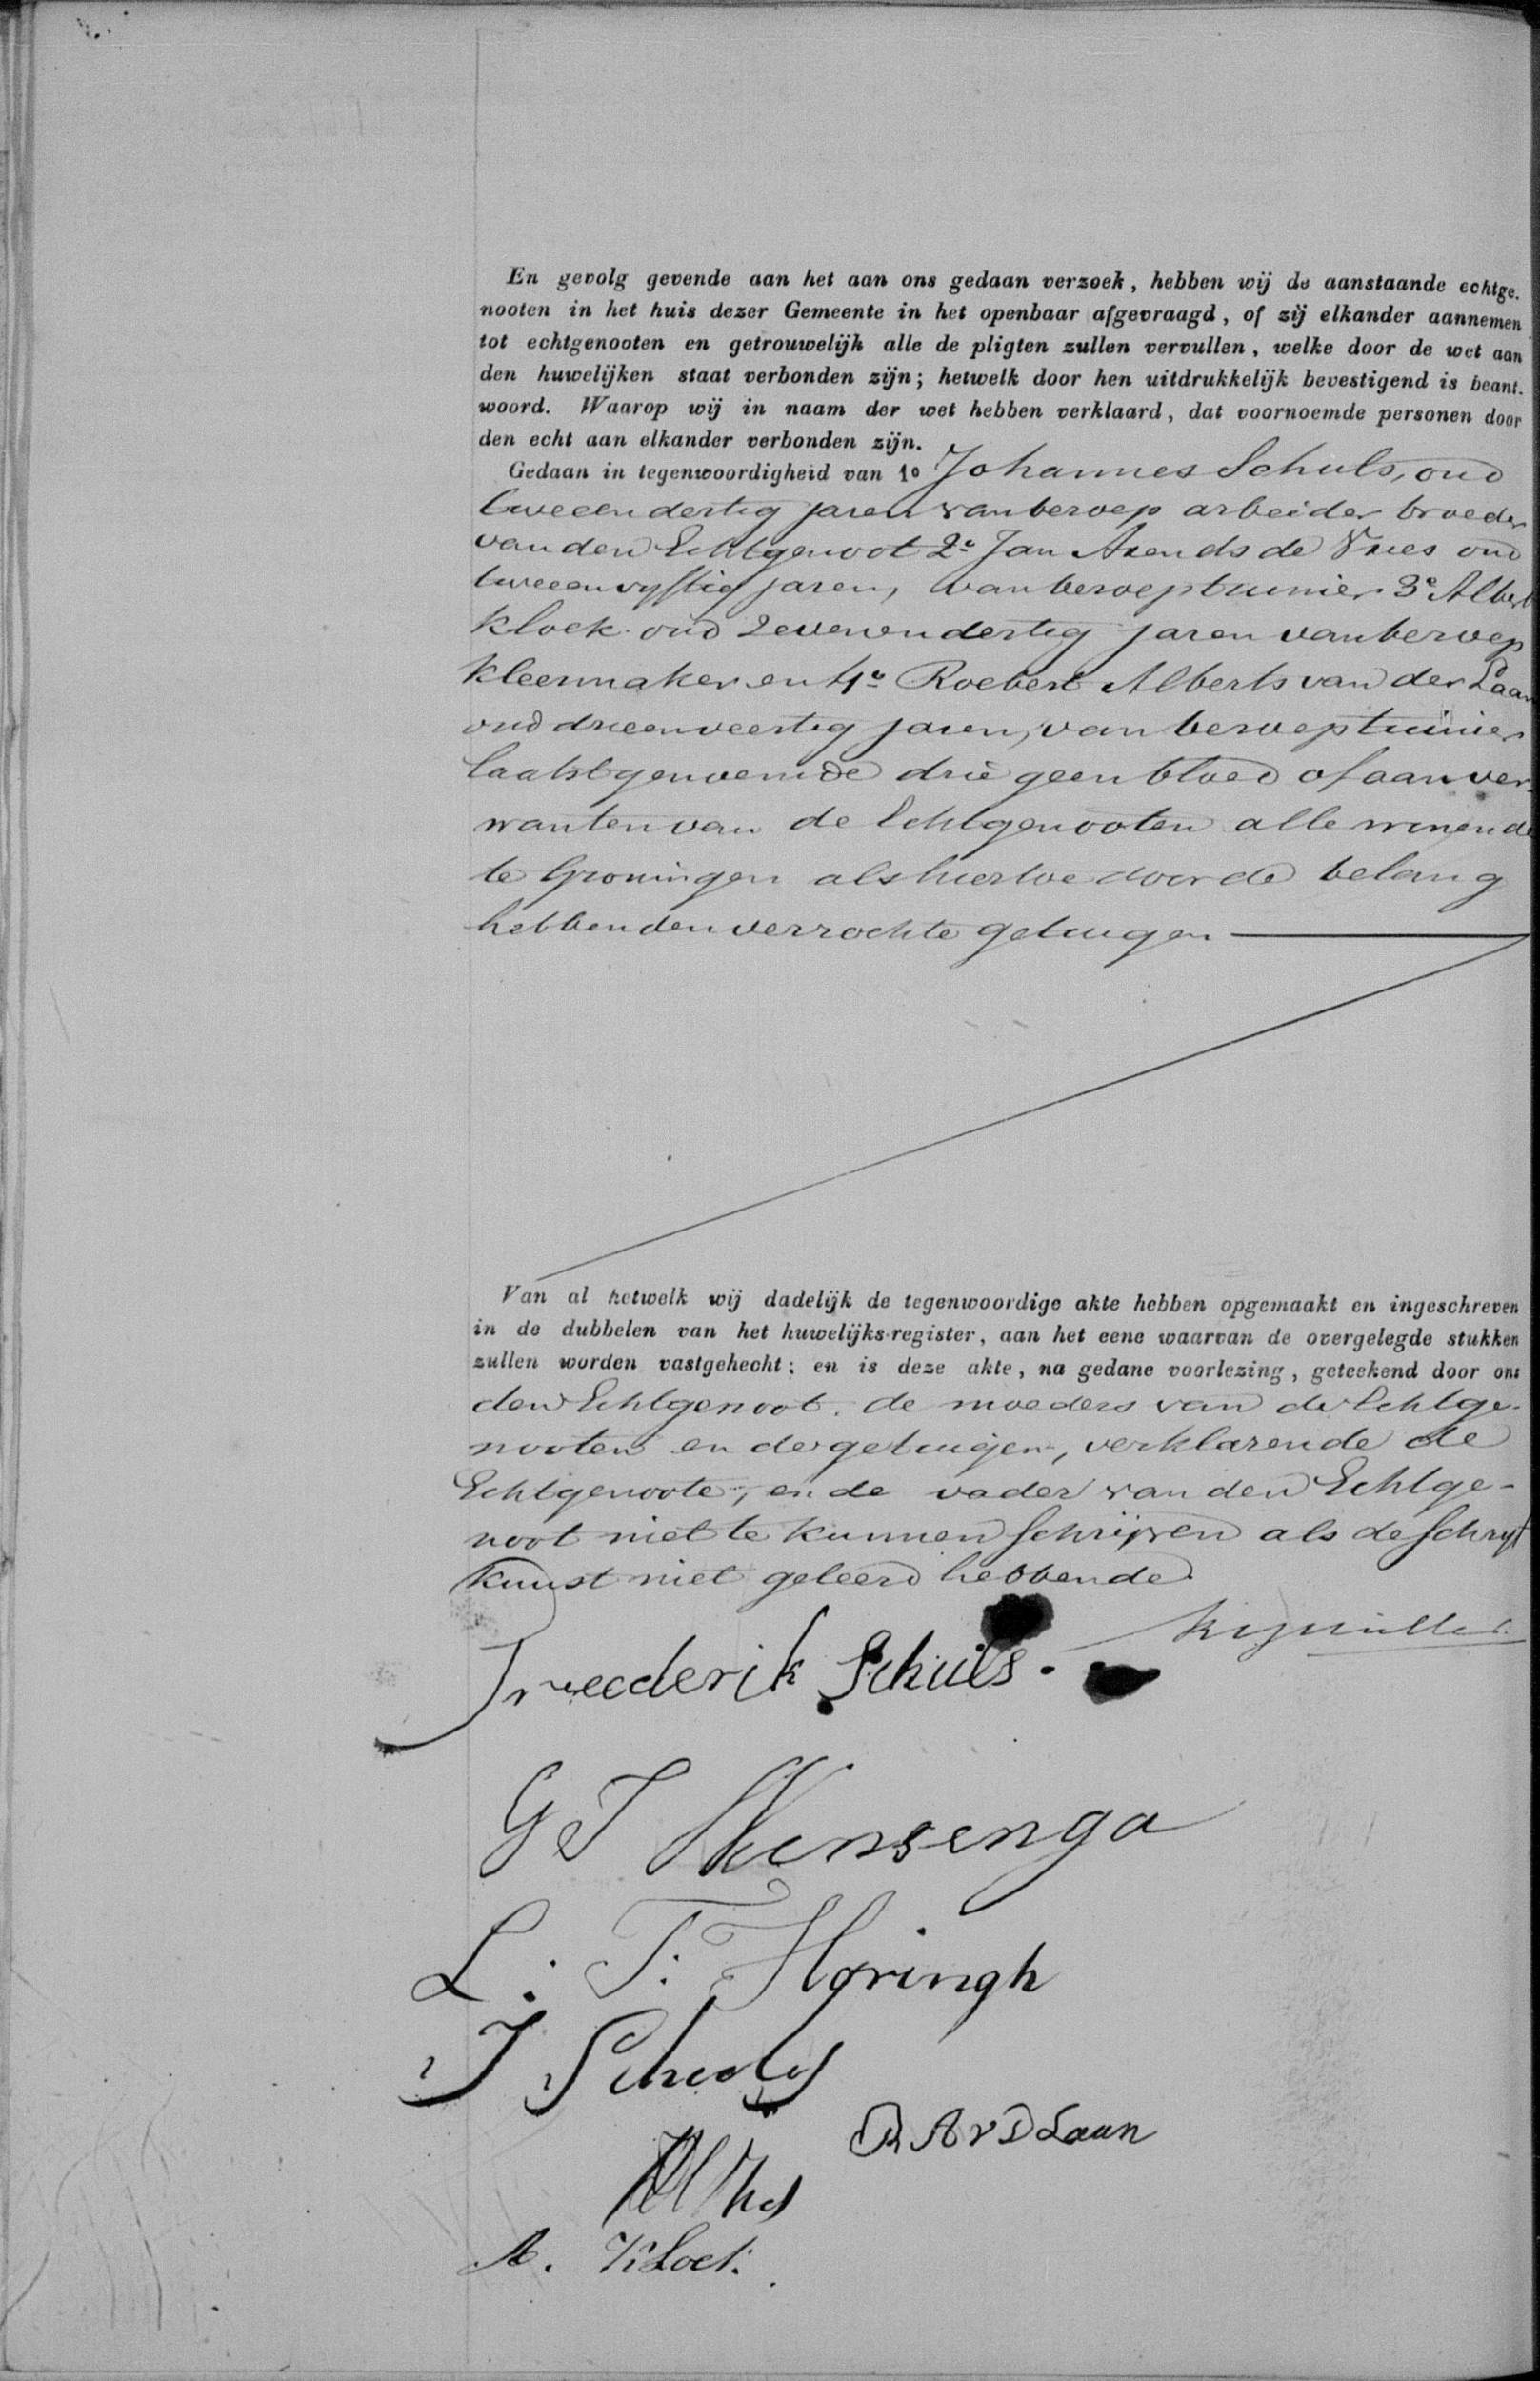 En gevolg gevende aan het aan ons gedaan verzoek, hebben wij de aanstaande echtge-
nooten in het huis dezer Gemeente in het openbaar afgevraagd, of zij elkander aannemen
tot echtgenooten en getrouwelijk alle de pligten zullen vervullen, welke door de wet aan
den huwelijken staat verbonden zijn; hetwelk door hen uitdrukkelijk bevestigend is beant-
woord. Waarop wij in naam der wet hebben verklaard, dat voornoemde personen door
den echt aan elkander verbonden zijn.
Gedaan in tegenwoordigheid van 1o Johannes Schuls, oud
tweeendertig jaren van beroep arbeider broeder
van den Echtgenoot 2e Jan Arends de Vries oud
tweeenvyftig jaren, van beroep tuinier 3e Albert
Klock oud zevenendertig jaren van beroep
kleermaker en 4e Roebert Alberts van der Laan
oud drieenveertig jaren, van beroep tuinier
laatstgenoemde drie geen bloed of aanver-
wanten van de Echtgenooten alle wonende
te Groningen als hiertoe door de belang
hebbenden verzochte getuigen
Van al hetwelk wij dadelijk de tegenwoordige akte hebben opgemaakt en ingeschreven
in de dubbelen van het huwelijks-register, aan het eene waarvan de overgelegde stukken
zullen worden vastgehecht; en is deze akte, na gedane voorlezing, geteekend door ons
den Echtgenoot. de moeders van de Echtge-
nooten en de getuigen, verklarende de
Echtgenoote, en de vader van den Echtge-
noot niet te kunnen schrijven als de schryf
kunst niet geleerd hebbende
Freederik Schuils.
G J Wensenga
L: T: Horingh
J Schols
R A v D Laan
A. Klock.